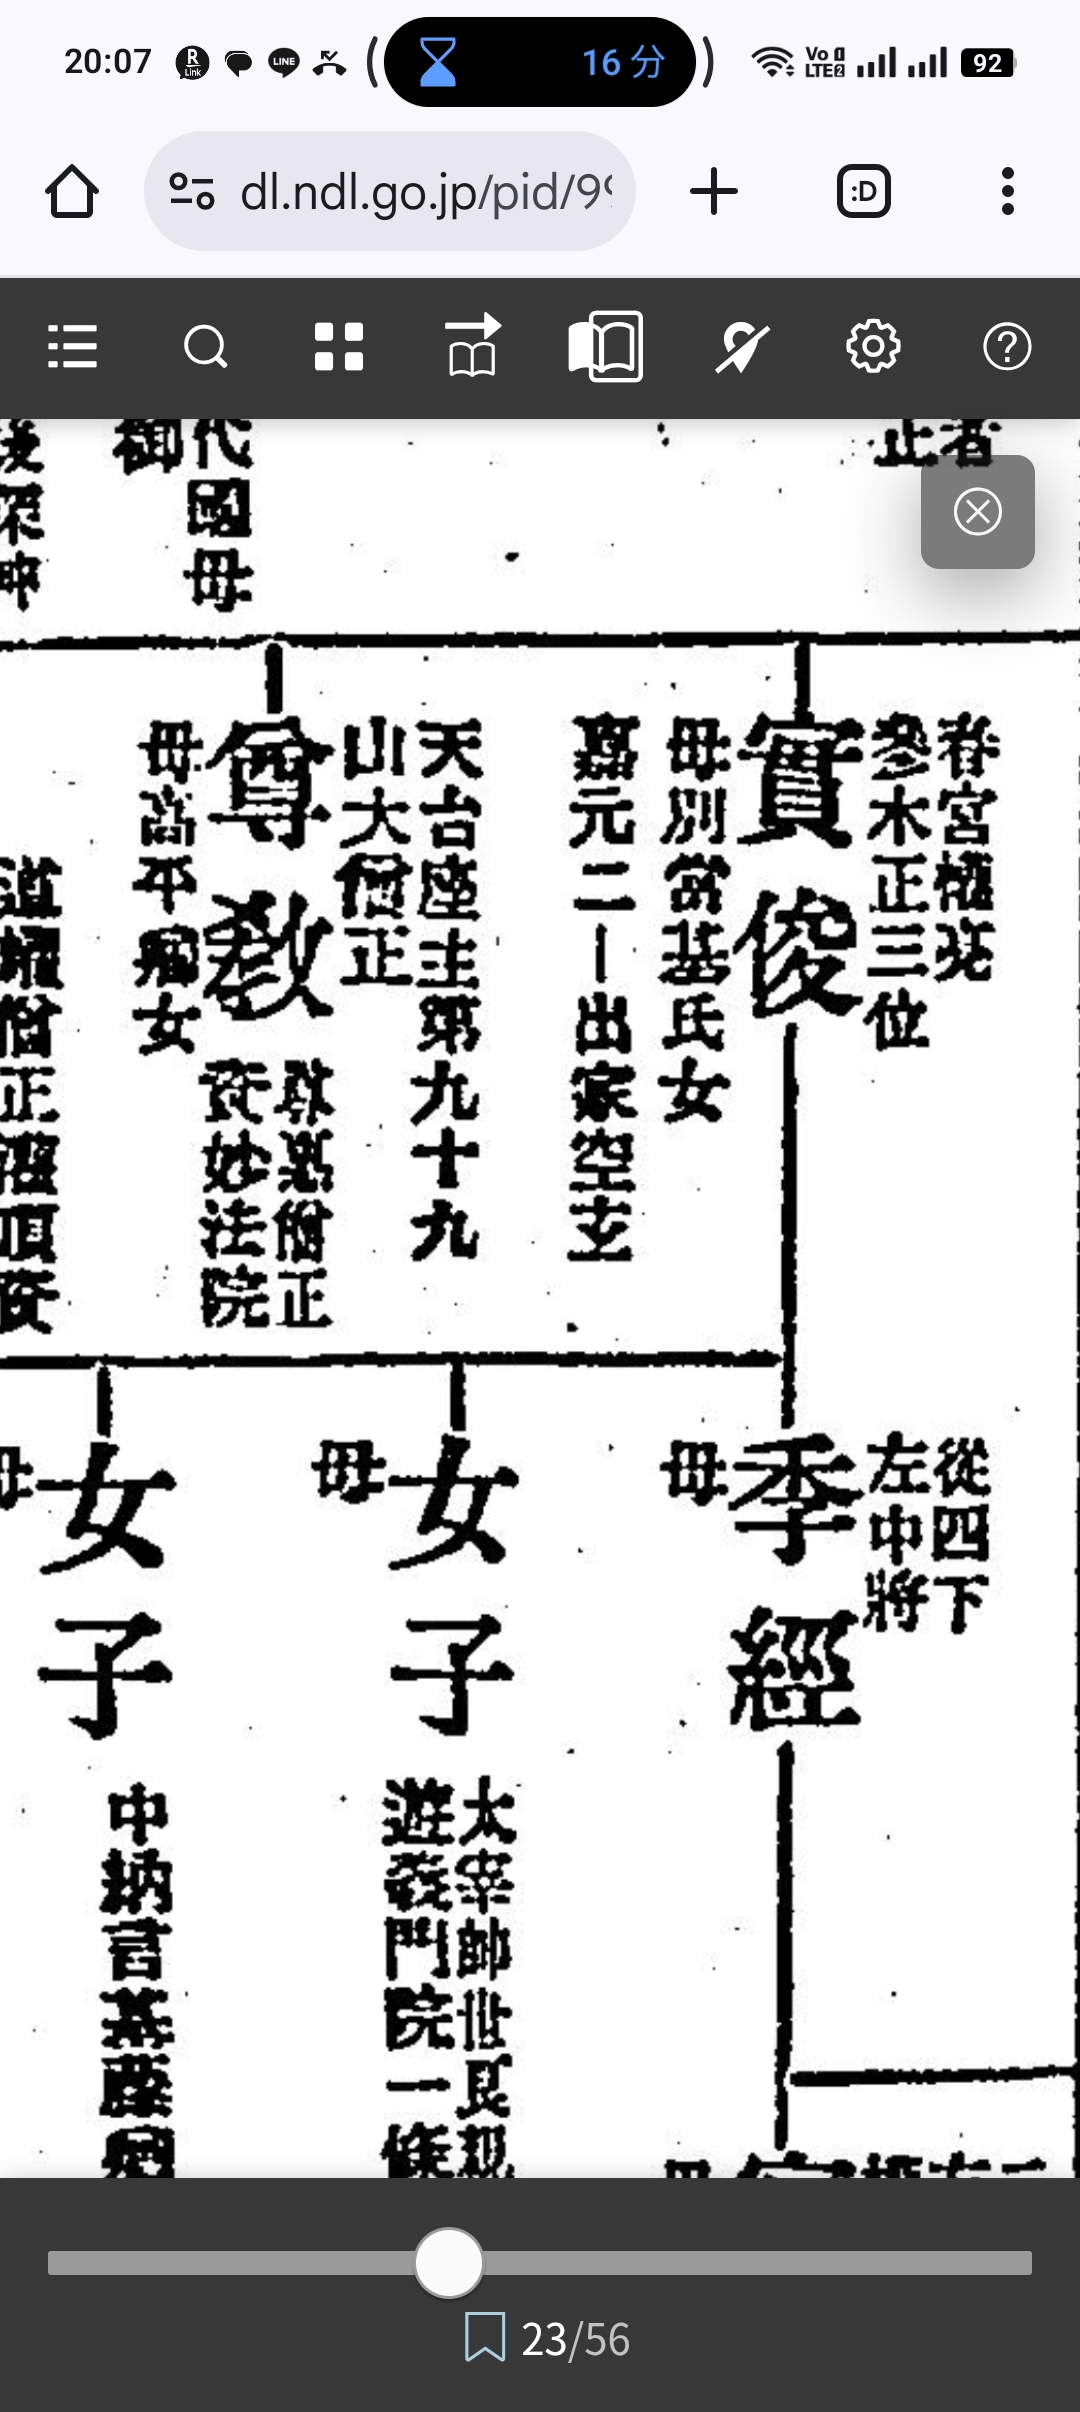 20:07
R
Link
LINE
16 分
Vo 1
LTE 2
92
dl.ndl.go.jp/pid/99
:D
者
止
代國母
御
春宮權亮
參木正三位
實俊
母別當基氏女
嘉元二—出家空玄
天台座主第九十九
山大僧正
尊教
尊惠僧正
資妙法院
母高平女
道僧正灌頂資
從四下
左中將
季經
母
女子
太宰帥世良親
遊義門院一條
母
女子
中納言藤
母
23/56